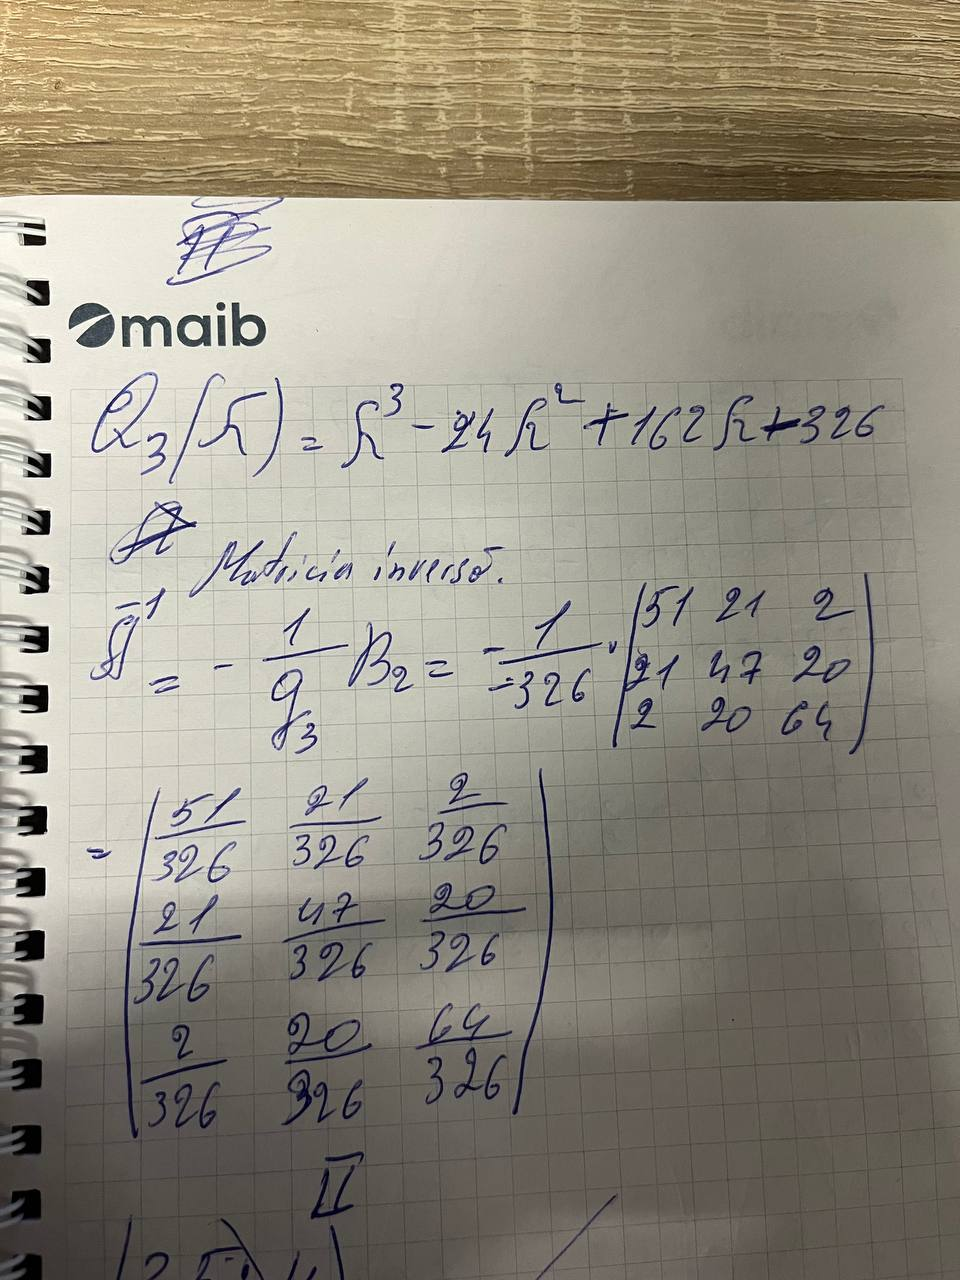 maib
Q₃(λ) = λ³ - 24λ² + 162λ - 326
Matricia inversă.
A⁻¹ = - 1/q₃ B₂ = - 1/-326 · |51 21 2|
|21 47 20|
|2 20 64|
= |51/326 21/326 2/326|
|21/326 47/326 20/326|
|2/326 20/326 64/326|
II